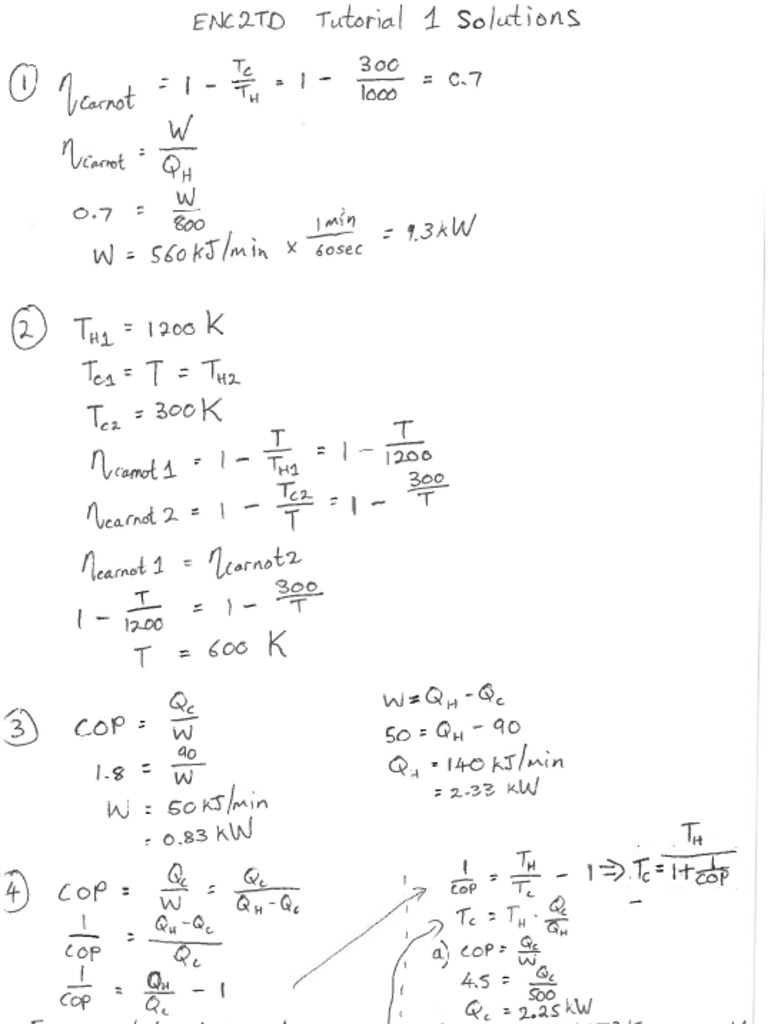 ENC2TD Tutorial 1 Solutions
① η carnot = 1 - Tc/TH = 1 - 300/1000 = 0.7
η carnot = W/QH
0.7 = W/800
W = 560 kJ/min × 1min/60sec = 9.3kW
② TH1 = 1200 K
Tc1 = T = TH2
Tc2 = 300K
η carnot 1 = 1 - T/TH1 = 1 - T/1200
η carnot 2 = 1 - Tc2/T = 1 - 300/T
η carnot 1 = η carnot 2
1 - T/1200 = 1 - 300/T
T = 600 K
③ COP = Qc/W
1.8 = 90/W
W = 50 kJ/min
= 0.83 kW
W = QH - Qc
50 = QH - 90
QH = 140 kJ/min
= 2.33 kW
④ COP = Qc/W = Qc/(QH-Qc)
1/COP = (QH-Qc)/Qc
1/COP = QH/Qc - 1
1/COP = TH/Tc - 1 ⇒ Tc = TH/(1+1/COP)
Tc = TH · Qc/QH
a) COP = Qc/W
4.5 = Qc/500
Qc = 2.25 kW